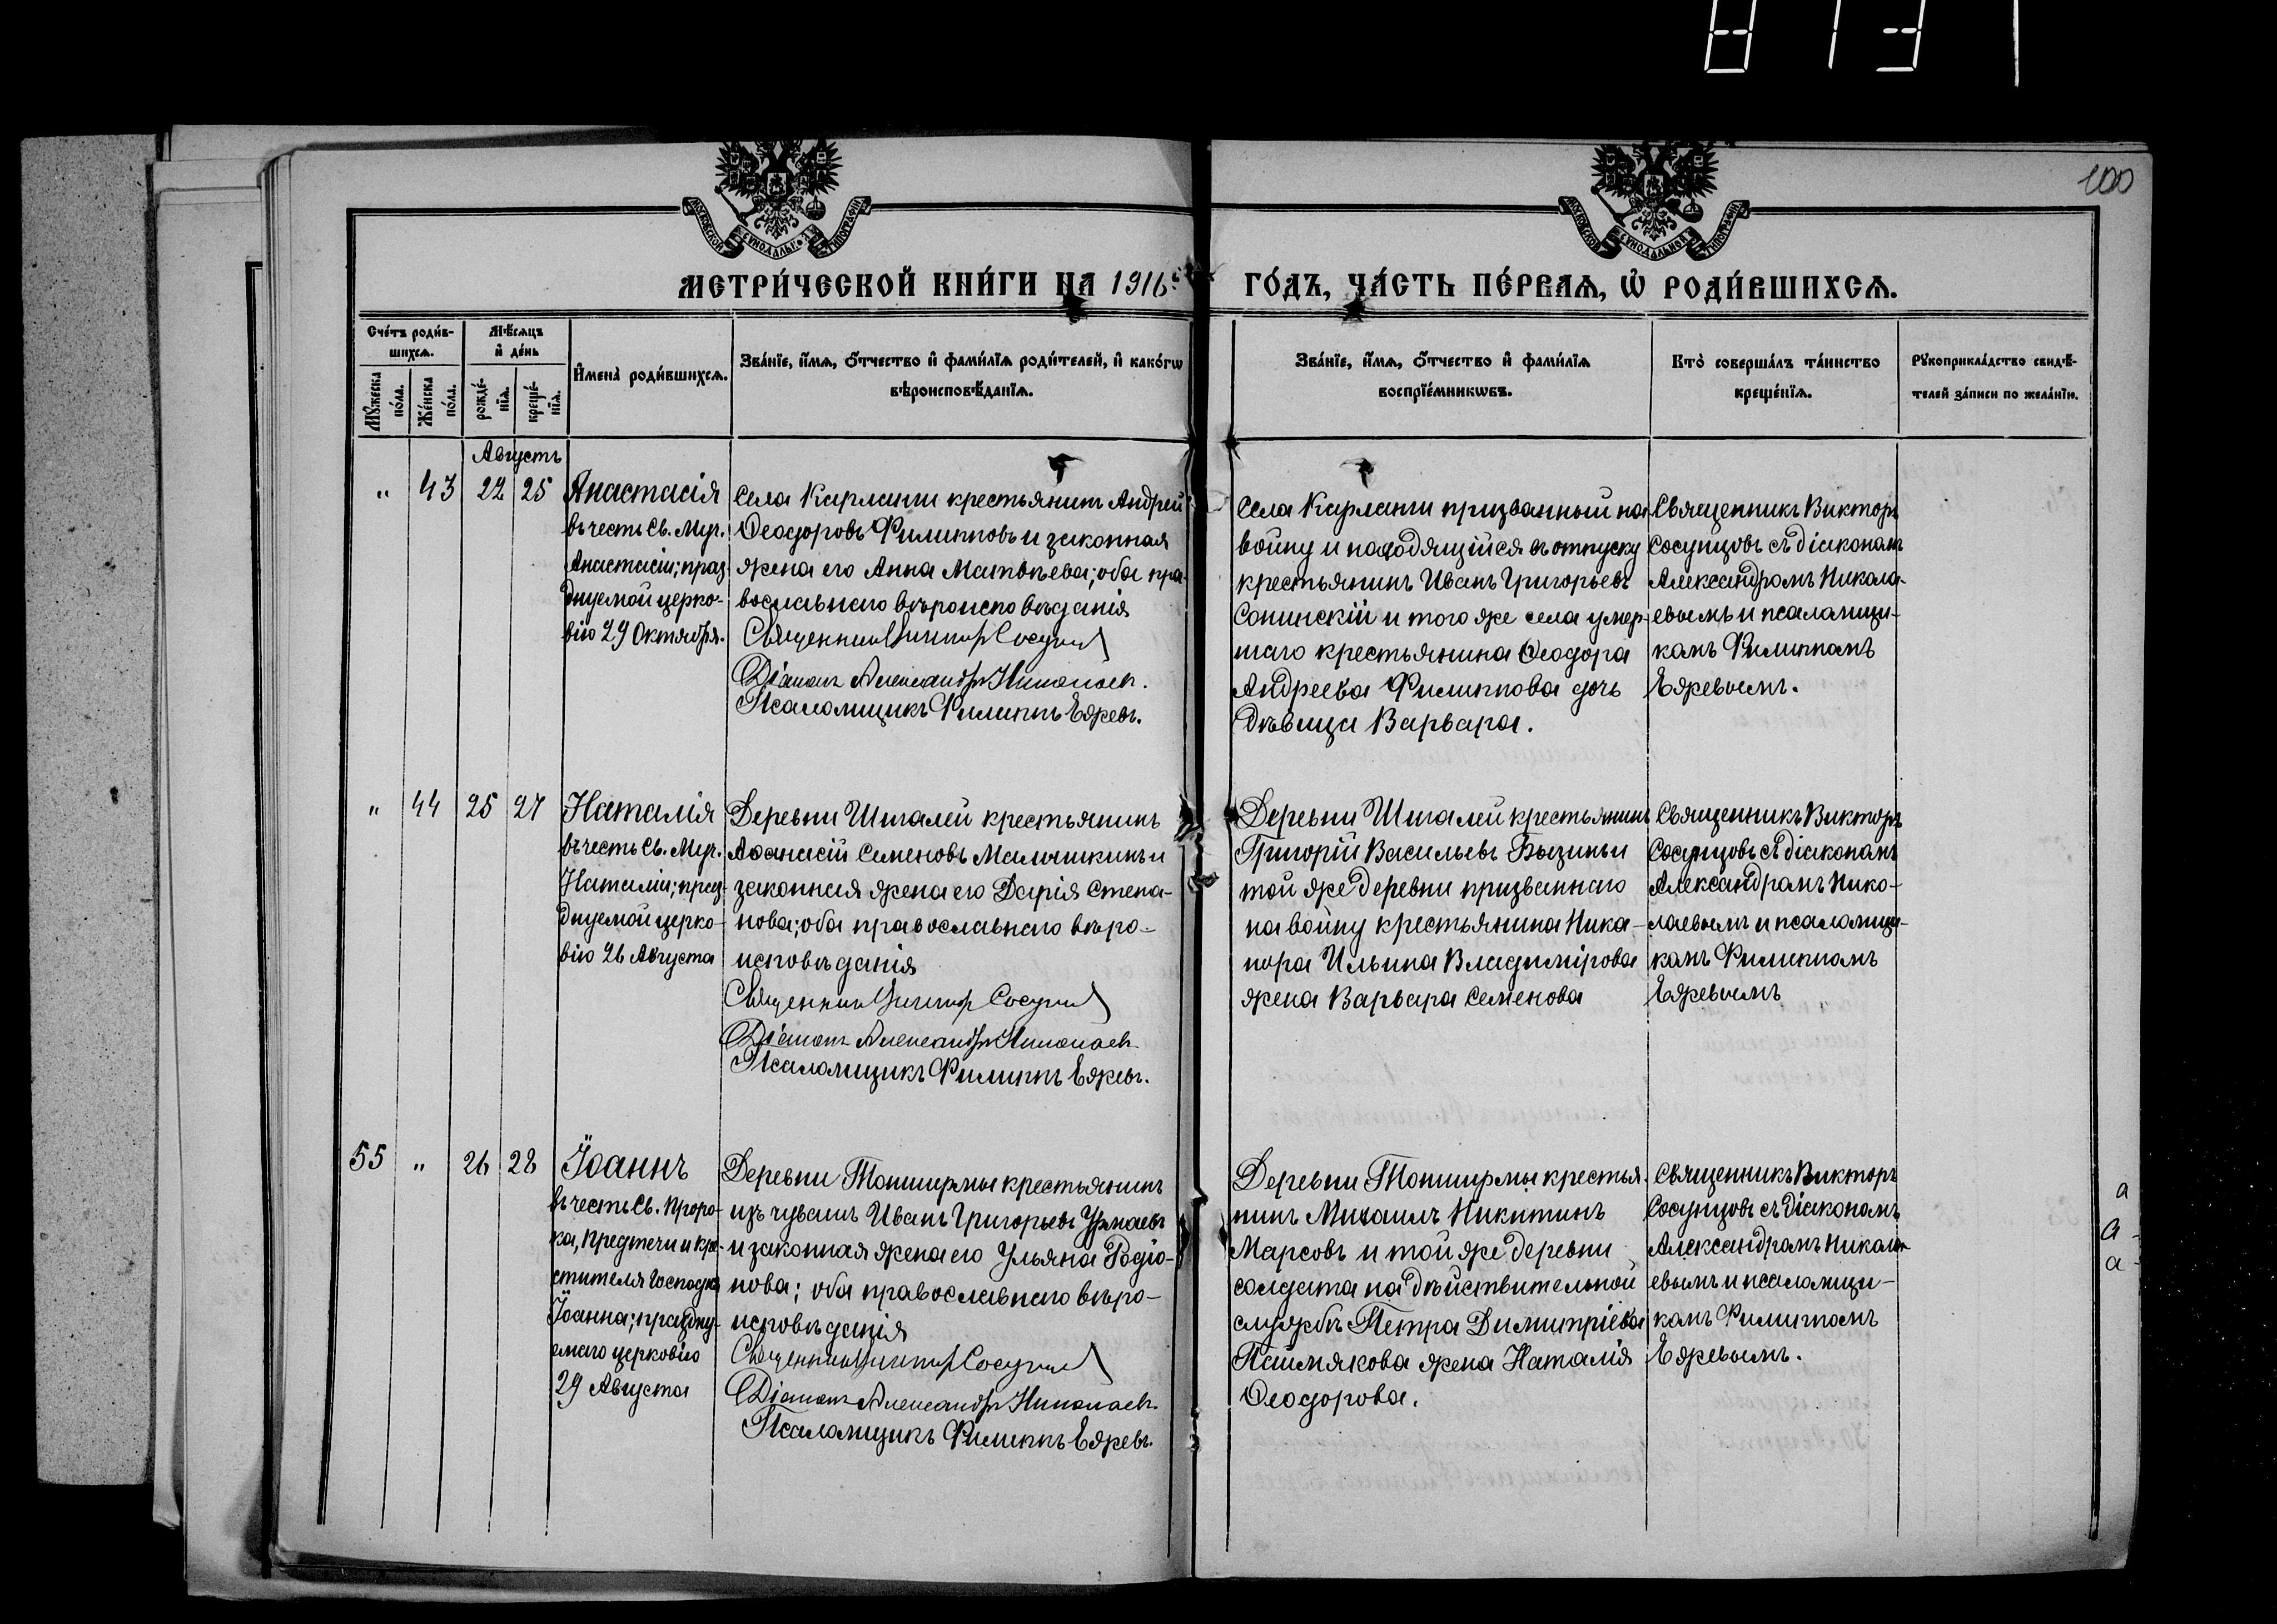 100
МОСКОВСКОЙ СУНОДАЛЬНОЙ ТИПОГРАФІИ
МОСКОВСКОЙ СУНОДАЛЬНОЙ ТИПОГРАФІИ
МЕТРИ́ЧЕСКОЙ КНИ́ГИ НА 1916 ГО́ДЪ, ЧА́СТЬ ПЕ́РВАЯ, Ѡ҆ РОДИ́ВШИХСЯ.
Сче́тъ роди́в-
шихся.
Му́жеска
по́ла.
Же́нска
по́ла.
Мѣ́сяцъ
и҆ де́нь
рожде́-
нїѧ.
креще́-
нїѧ.
И҆мена̀ роди́вшихсѧ.
Зва́нїе, и҆́мѧ, ѻ҆́тчество и҆ фами́лїѧ роди́телей, и҆ како́гѡ
вѣроисповѣ́данїѧ.
Зва́нїе, и҆́мѧ, ѻ҆́тчество и҆ фами́лїѧ
воспрїе́мникѡвъ.
Кто̀ соверша́лъ та́инство
креще́нїѧ.
Рꙋкоприкла́дство свидѣ́-
телей за́писи по жела́нїю.
Августъ
" 43 22 25
Анастасія
въ честь Св. Муч.
Анастасіи; праз-
днуемой церко-
вію 29 Октября.
Села Карланги крестьянинъ Андрей
Ѳеодоровъ Филипповъ и законная
жена его Анна Матвѣева; оба пра-
вославнаго вѣроисповѣданія
Священникъ Викторъ Сосунцовъ
Діаконъ Александръ Николаевъ.
Псаломщикъ Филиппъ Ежевъ.
Села Карланги призванный на
войну и находящійся въ отпуску
крестьянинъ Иванъ Григорьевъ
Сонинскій и того же села умер-
шаго крестьянина Ѳеодора
Андреева Филиппова дочь
дѣвица Варвара.
Священникъ Викторъ
Сосунцовъ съ діакономъ
Александромъ Никола-
евымъ и псаломщи-
комъ Филиппомъ
Ежевымъ.
" 44 25 27
Наталія
въ честь Св. Муч.
Наталіи; праз-
днуемой церко-
вію 26 Августа
Деревни Шигалей крестьянинъ
Аѳанасій Семеновъ Малышкинъ и
законная жена его Дарія Степа-
нова; оба православнаго вѣро-
исповѣданія
Священникъ Викторъ Сосунцовъ
Діаконъ Александръ Николаевъ.
Псаломщикъ Филиппъ Ежевъ.
Деревни Шигалей крестьянинъ
Григорій Васильевъ Бызинъ и
той же деревни призваннаго
на войну крестьянина Ника-
нора Ильина Владимірова
жена Варвара Семенова
Священникъ Викторъ
Сосунцовъ съ діакономъ
Александромъ Нико-
лаевымъ и псаломщи-
комъ Филиппомъ
Ежевымъ
55 " 26 28
Іоаннъ
въ честь Св. Проро-
ка, Предтечи и Кре-
стителя Господня
Іоанна; праздну-
емаго церковію
29 Августа
Деревни Тоншермы крестьянинъ
изъ чувашъ Иванъ Григорьевъ Урмаевъ
и законная жена его Ульяна Родіо-
нова; оба православнаго вѣро-
исповѣданія
Священникъ Викторъ Сосунцовъ
Діаконъ Александръ Николаевъ.
Псаломщикъ Филиппъ Ежевъ.
Деревни Тоншермы крестья-
нинъ Михаилъ Никитинъ
Марсовъ и той же деревни
солдата на дѣйствительной
службѣ Петра Димитріева
Паймякова жена Наталія
Ѳеодорова.
Священникъ Викторъ
Сосунцовъ съ діакономъ
Александромъ Никола-
евымъ и псаломщи-
комъ Филиппомъ
Ежевымъ.
а
а -
а -